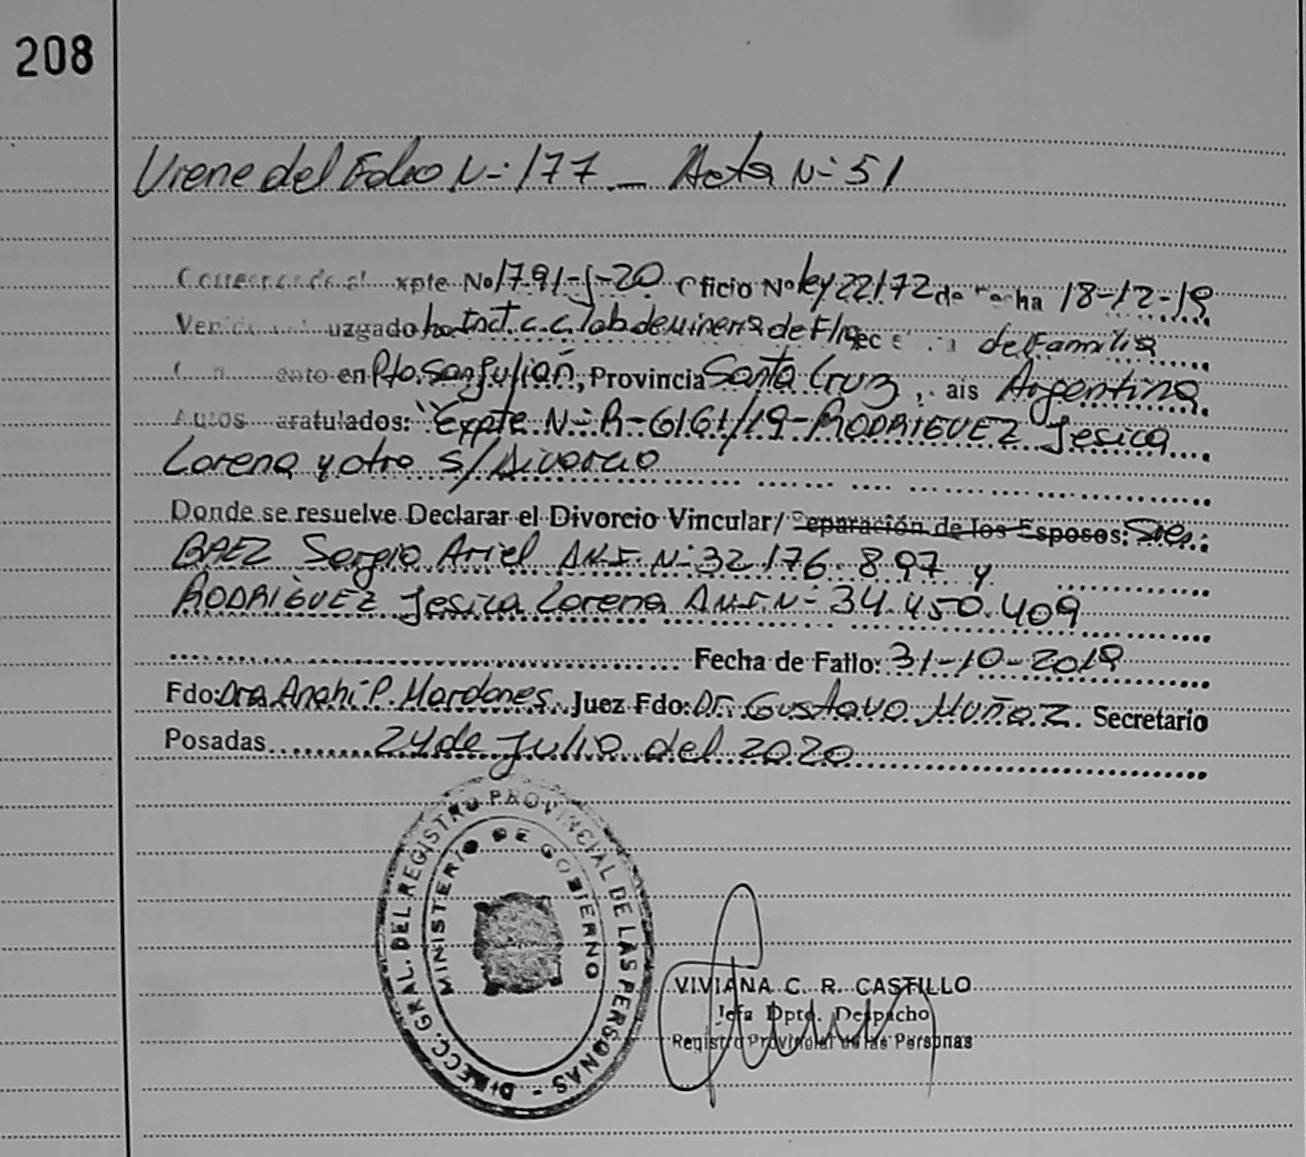 208
Viene del Folio N-: 177 — Acta N-: 51
Corresponde al xpte No 1791-J-20 Oficio Nº ley 22172 de fecha 18-12-19
uzgado de Flia de Familia
ento en Pto. San Julián, Provincia Santa Cruz, ais Argentina
Autos aratulados: "Expte N-: R-6161/19-RODRIGUEZ Jesica
Lorena y otro s/Divorcio
Donde se resuelve Declarar el Divorcio Vincular/ Separación de los Esposos: Sres:
BAEZ Sergio Ariel D.N.I. N-: 32.176.897 y
RODRIGUEZ Jesica Lorena D.N.I. N-: 34.450.409
Fecha de Fallo: 31-10-2019
Fdo: Dra Anahi P. Mardones. Juez Fdo: Dr. Gustavo Muñoz. Secretario
Posadas 24 de Julio del 2020
DIRECC. GRAL. DEL REGISTRO PROVINCIAL DE LAS PERSONAS -
MINISTERIO DE GOBIERNO
VIVIANA C. R. CASTILLO
Jefa Dpto. Despacho
Registro Provincial de las Personas